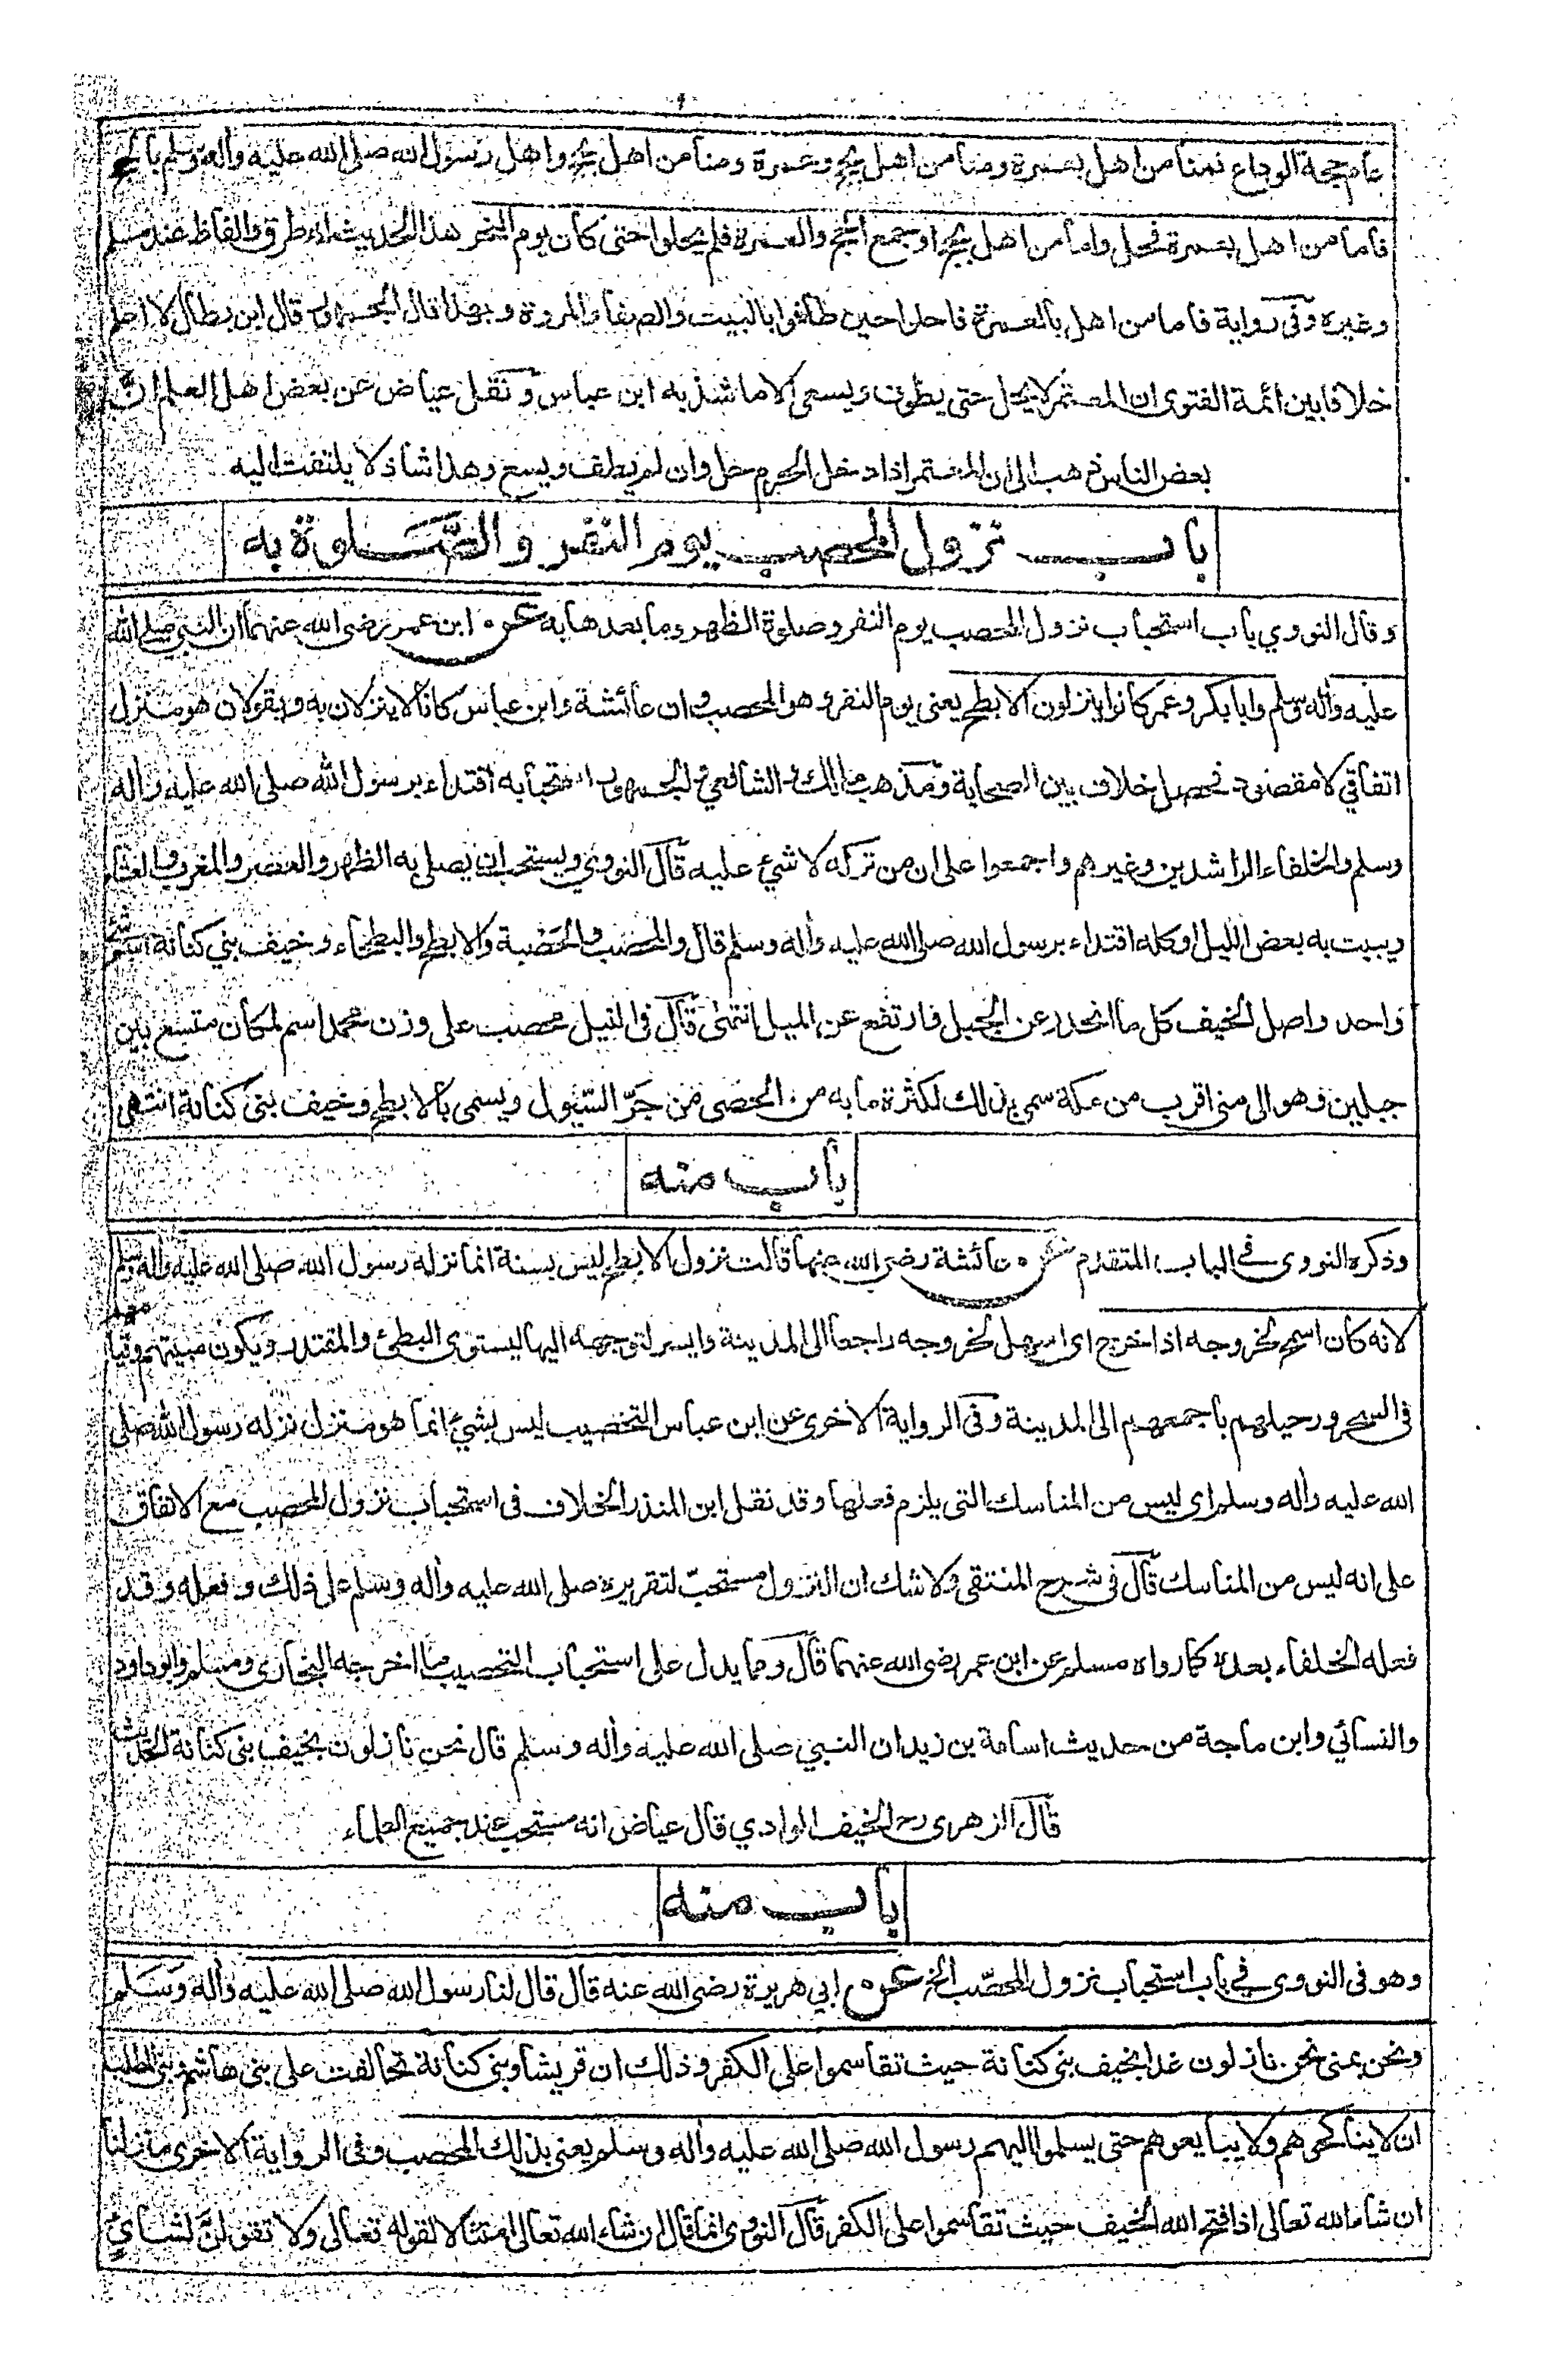 عام حجة الوداع فمنا من اهل بعمرة ومنا من اهل بحج وعمرة ومنا من اهل بحج واهل رسول الله صلى الله عليه وأله وسلم بالحج
فأما من اهل بعمرة فحل واما من اهل بحج او جمع الحج والعمرة فلم يحلوا حتى كان يوم النحر هذا الحديث له طرق والفاظ عند مسلم
وغيره وفى رواية فاما من اهل بالعمرة فاحلوا حين طافوا بالبيت والصفا والمروة وبهذا قال الجمهور قال ابن بطال لا اعلم
خلافا بين ائمة الفتوى ان المعتمر لا يحل حتى يطوف ويسعى الا ما شذ به ابن عباس ونقل عياض عن بعض اهل العلم ان
بعض الناس ذهب الى ان المعتمر اذا دخل الحرم حل وان لم يطف ويسع وهذا شاذ لا يلتفت اليه
باب نزول المحصب يوم النفر والصَّلوة به
وقال النووي باب استحباب نزول المحصب يوم النفر وصلوة الظهر وما بعدها به عن ابن عمر رضى الله عنهما ان النبي صلى الله
عليه وأله وسلم وابا بكر وعمر كانوا ينزلون الابطح يعنى يوم النفر وهو المحصب وان عائشة وابن عباس كانا لا ينزلان به ويقولان هو منزل
اتفاقي لا مقصود فحصل خلاف بين الصحابة ومذهب مالك والشافعي والجمهور استحبابه اقتداء برسول الله صلى الله عليه وأله
وسلم والخلفاء الراشدين وغيرهم واجمعوا على ان من تركه لا شيء عليه قال النووي ويستحب ان يصلى به الظهر والعصر والمغرب والعشاء
ويبيت به بعض الليل او كله اقتداء برسول الله صلى الله عليه وأله وسلم قال والمحصب والحصبة والابطح والبطحاء وخيف بني كنانة اسم
واحد واصل الخيف كل ما انحدر عن الجبل فارتفع عن الميل انتهى قال فى النيل محصب على وزن محمد اسم لمكان متسع بين
جبلين وهو الى منى اقرب من مكة سمي بذلك لكثرة ما به من الحصى من جَرّ السّيول ويسمى بالابطح وخيف بنى كنانة انتهى
باب منه
وذكره النووى فى الباب المتقدم عن عائشة رضى الله عنها قالت نزول الابطح ليس بسنة انما نزله رسول الله صلى الله عليه وأله وسلم
لانه كان اسمح لخروجه اذا خرج اى اسهل لخروجه راجعا الى المدينة وايسر لتوجهه اليها ليستوى البطئ والمقتدر ويكون مبيتهم وقيامهم
فى السحر ورحيلهم باجمعهم الى المدينة وفى الرواية الاخرى عن ابن عباس التحصيب ليس بشيء انما هو منزل نزله رسول الله صلى
الله عليه وأله وسلم اى ليس من المناسك التى يلزم فعلها وقد نقل ابن المنذر الخلاف فى استحباب نزول المحصب مع الاتفاق
على انه ليس من المناسك قال فى شرح المنتقى ولا شك ان النزول مستحبّ لتقريره صلى الله عليه وأله وسلم على ذلك وفعله وقد
فعله الخلفاء بعده كما رواه مسلم عن ابن عمر رضى الله عنهما قال ومما يدل على استحباب التحصيب ما اخرجه البخارى ومسلم وابو داود
والنسائي وابن ماجة من حديث اسامة بن زيد ان النبي صلى الله عليه وأله وسلم قال نحن نازلون بخيف بنى كنانة الحديث
قال الزهرى رح الخيف الوادي قال عياض انه مستحب عند جميع العلماء
باب منه
وهو فى النووى فى باب استحباب نزول المحصّب الخ عن ابي هريرة رضى الله عنه قال قال لنا رسول الله صلى الله عليه وأله وسَلم
ونحن بمنى نحن نازلون غدا بخيف بنى كنانة حيث تقاسموا على الكفر وذلك ان قريشا وبنى كنانة تحالفت على بنى هاشم وبنى المطلب
ان لا يناكحوهم ولا يبايعوهم حتى يسلموا اليهم رسول الله صلى الله عليه وأله وسلم يعنى بذلك المحصب وفى الرواية الاخرى منزلنا
ان شاء الله تعالى اذا فتح الله الخيف حيث تقاسموا على الكفر قال النووى انما قال ان شاء الله تعالى امتثالا لقوله تعالى ولا تقولنَّ لشايءٍ